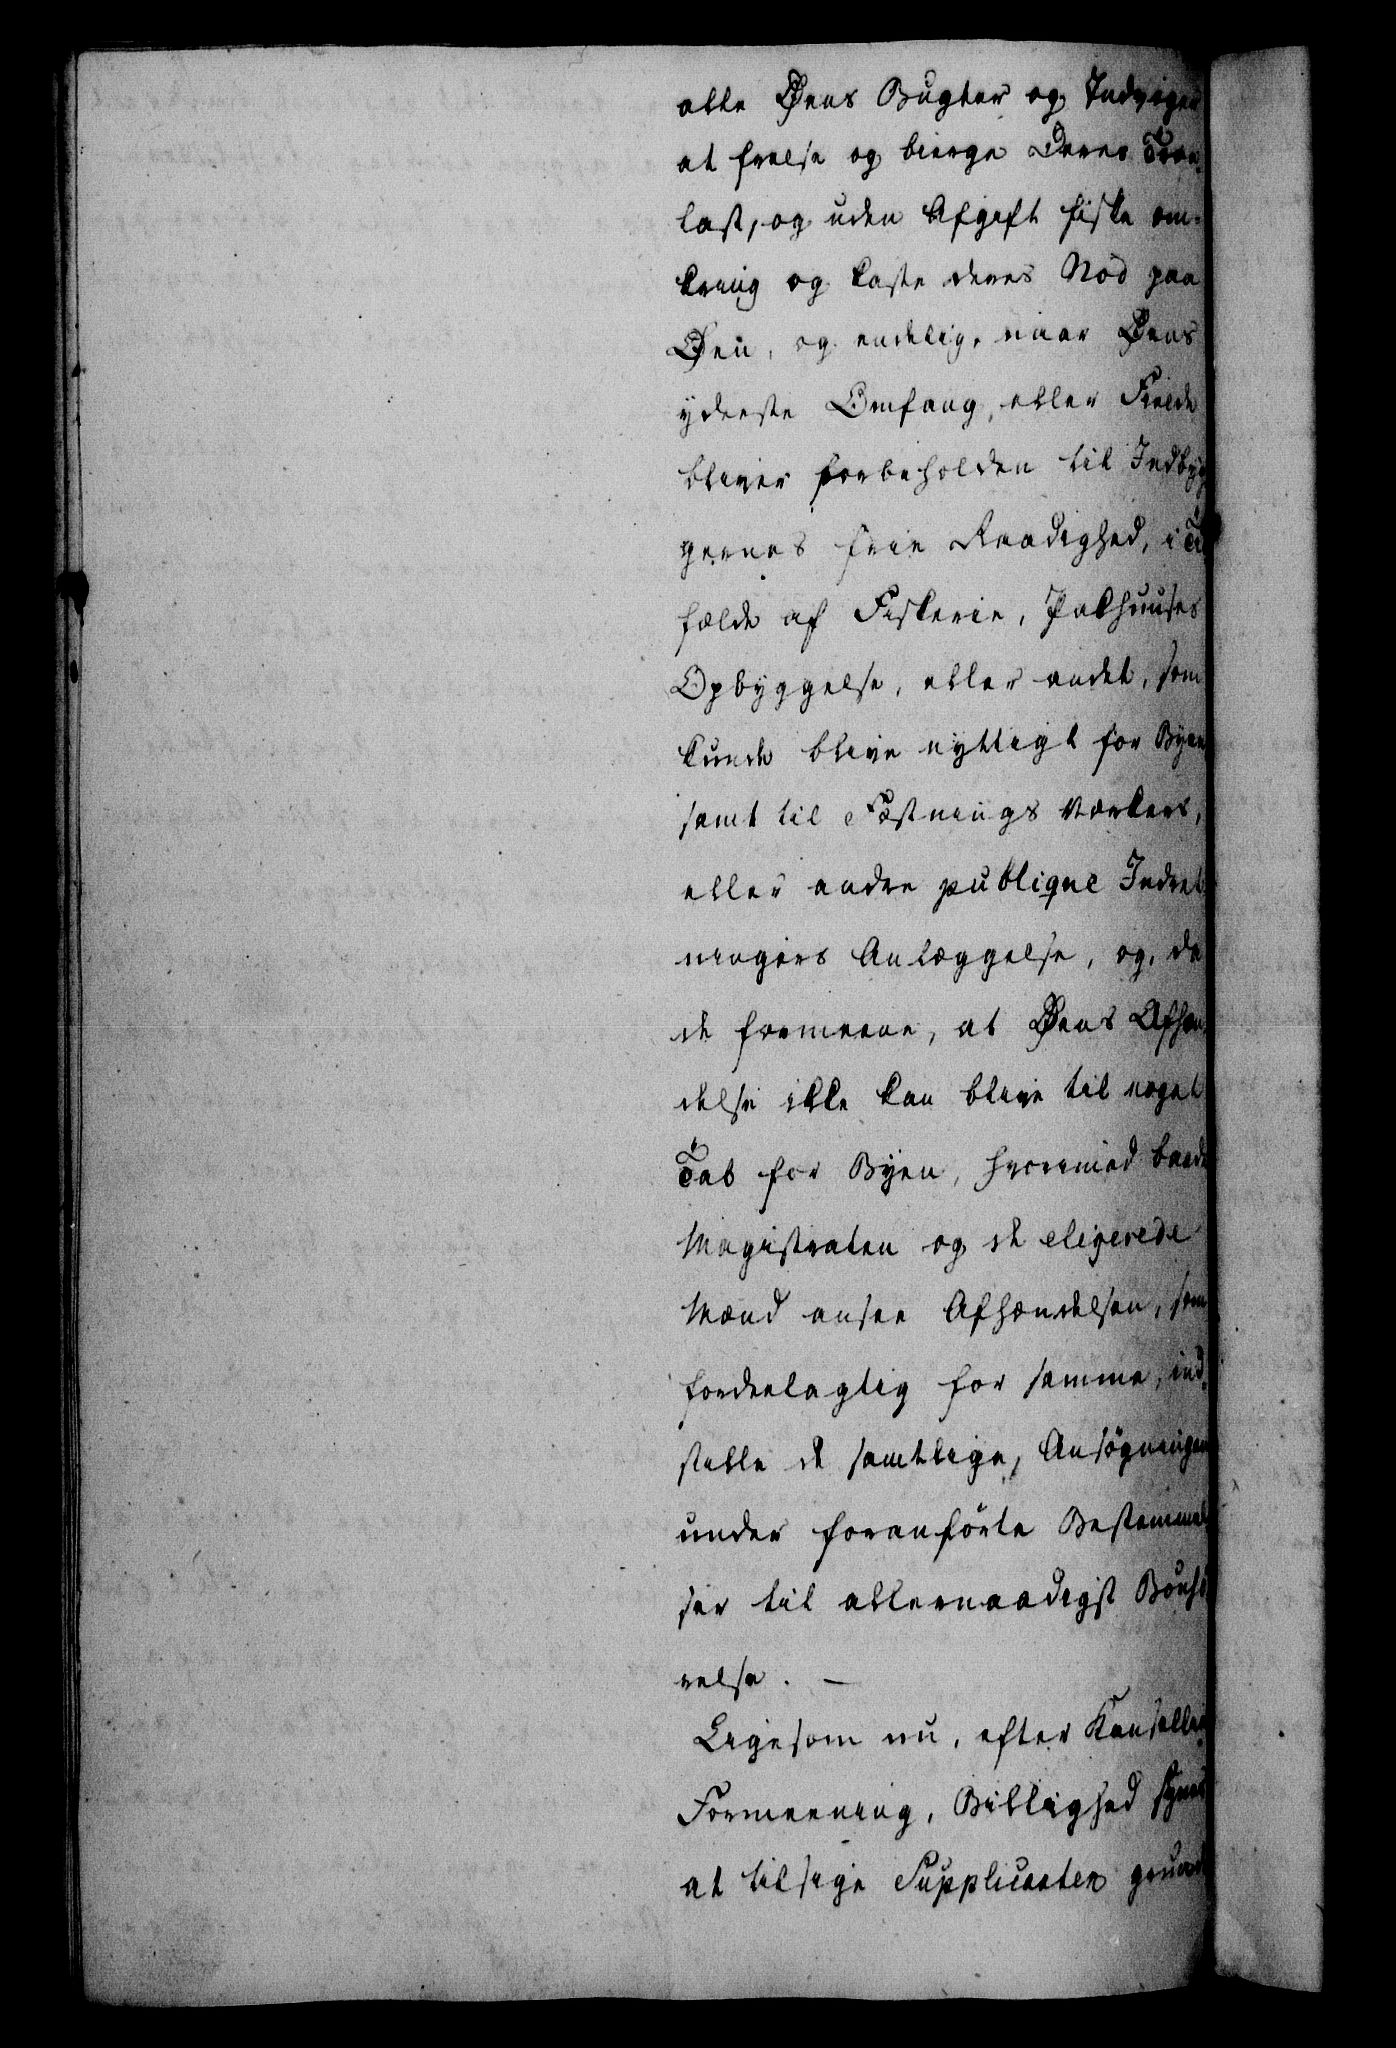 alle Øens Bugter og Indviger
at frelse og bierge Deres Træ-
last, og uden Afgift fiske om-
kring og kaste deres Nod paa
Øen, og endelig, naar Øens
yderste Omfang, eller Fielde
bliver forbeholden til Indbyg
gernes frie Raadighed, i Til
fælde af Fiskerie, Pakhuuses
Opbyggelse, eller andet, som
kunde blive nyttigt for Byen
samt til Fæstnings Værkers,
eller andre publique Indret
ningers Anlæggelse, og, da
de formeene, at Øens Afhæn
delse ikke kan blive til noget
Tab for Byen, hvorimod baade
Magistraten og de eligerede
Mænd ansee Afhændelsen, som
fordeelagtig for samme, ind-
stille de samtlige, Ansøgningen
under foranførte Bestemmel
ser til allernaadigst Bønhø
relse. —
Ligesom nu, efter Kancellie
Formeening, Billighed synes
at tilsige Supplicanten grund